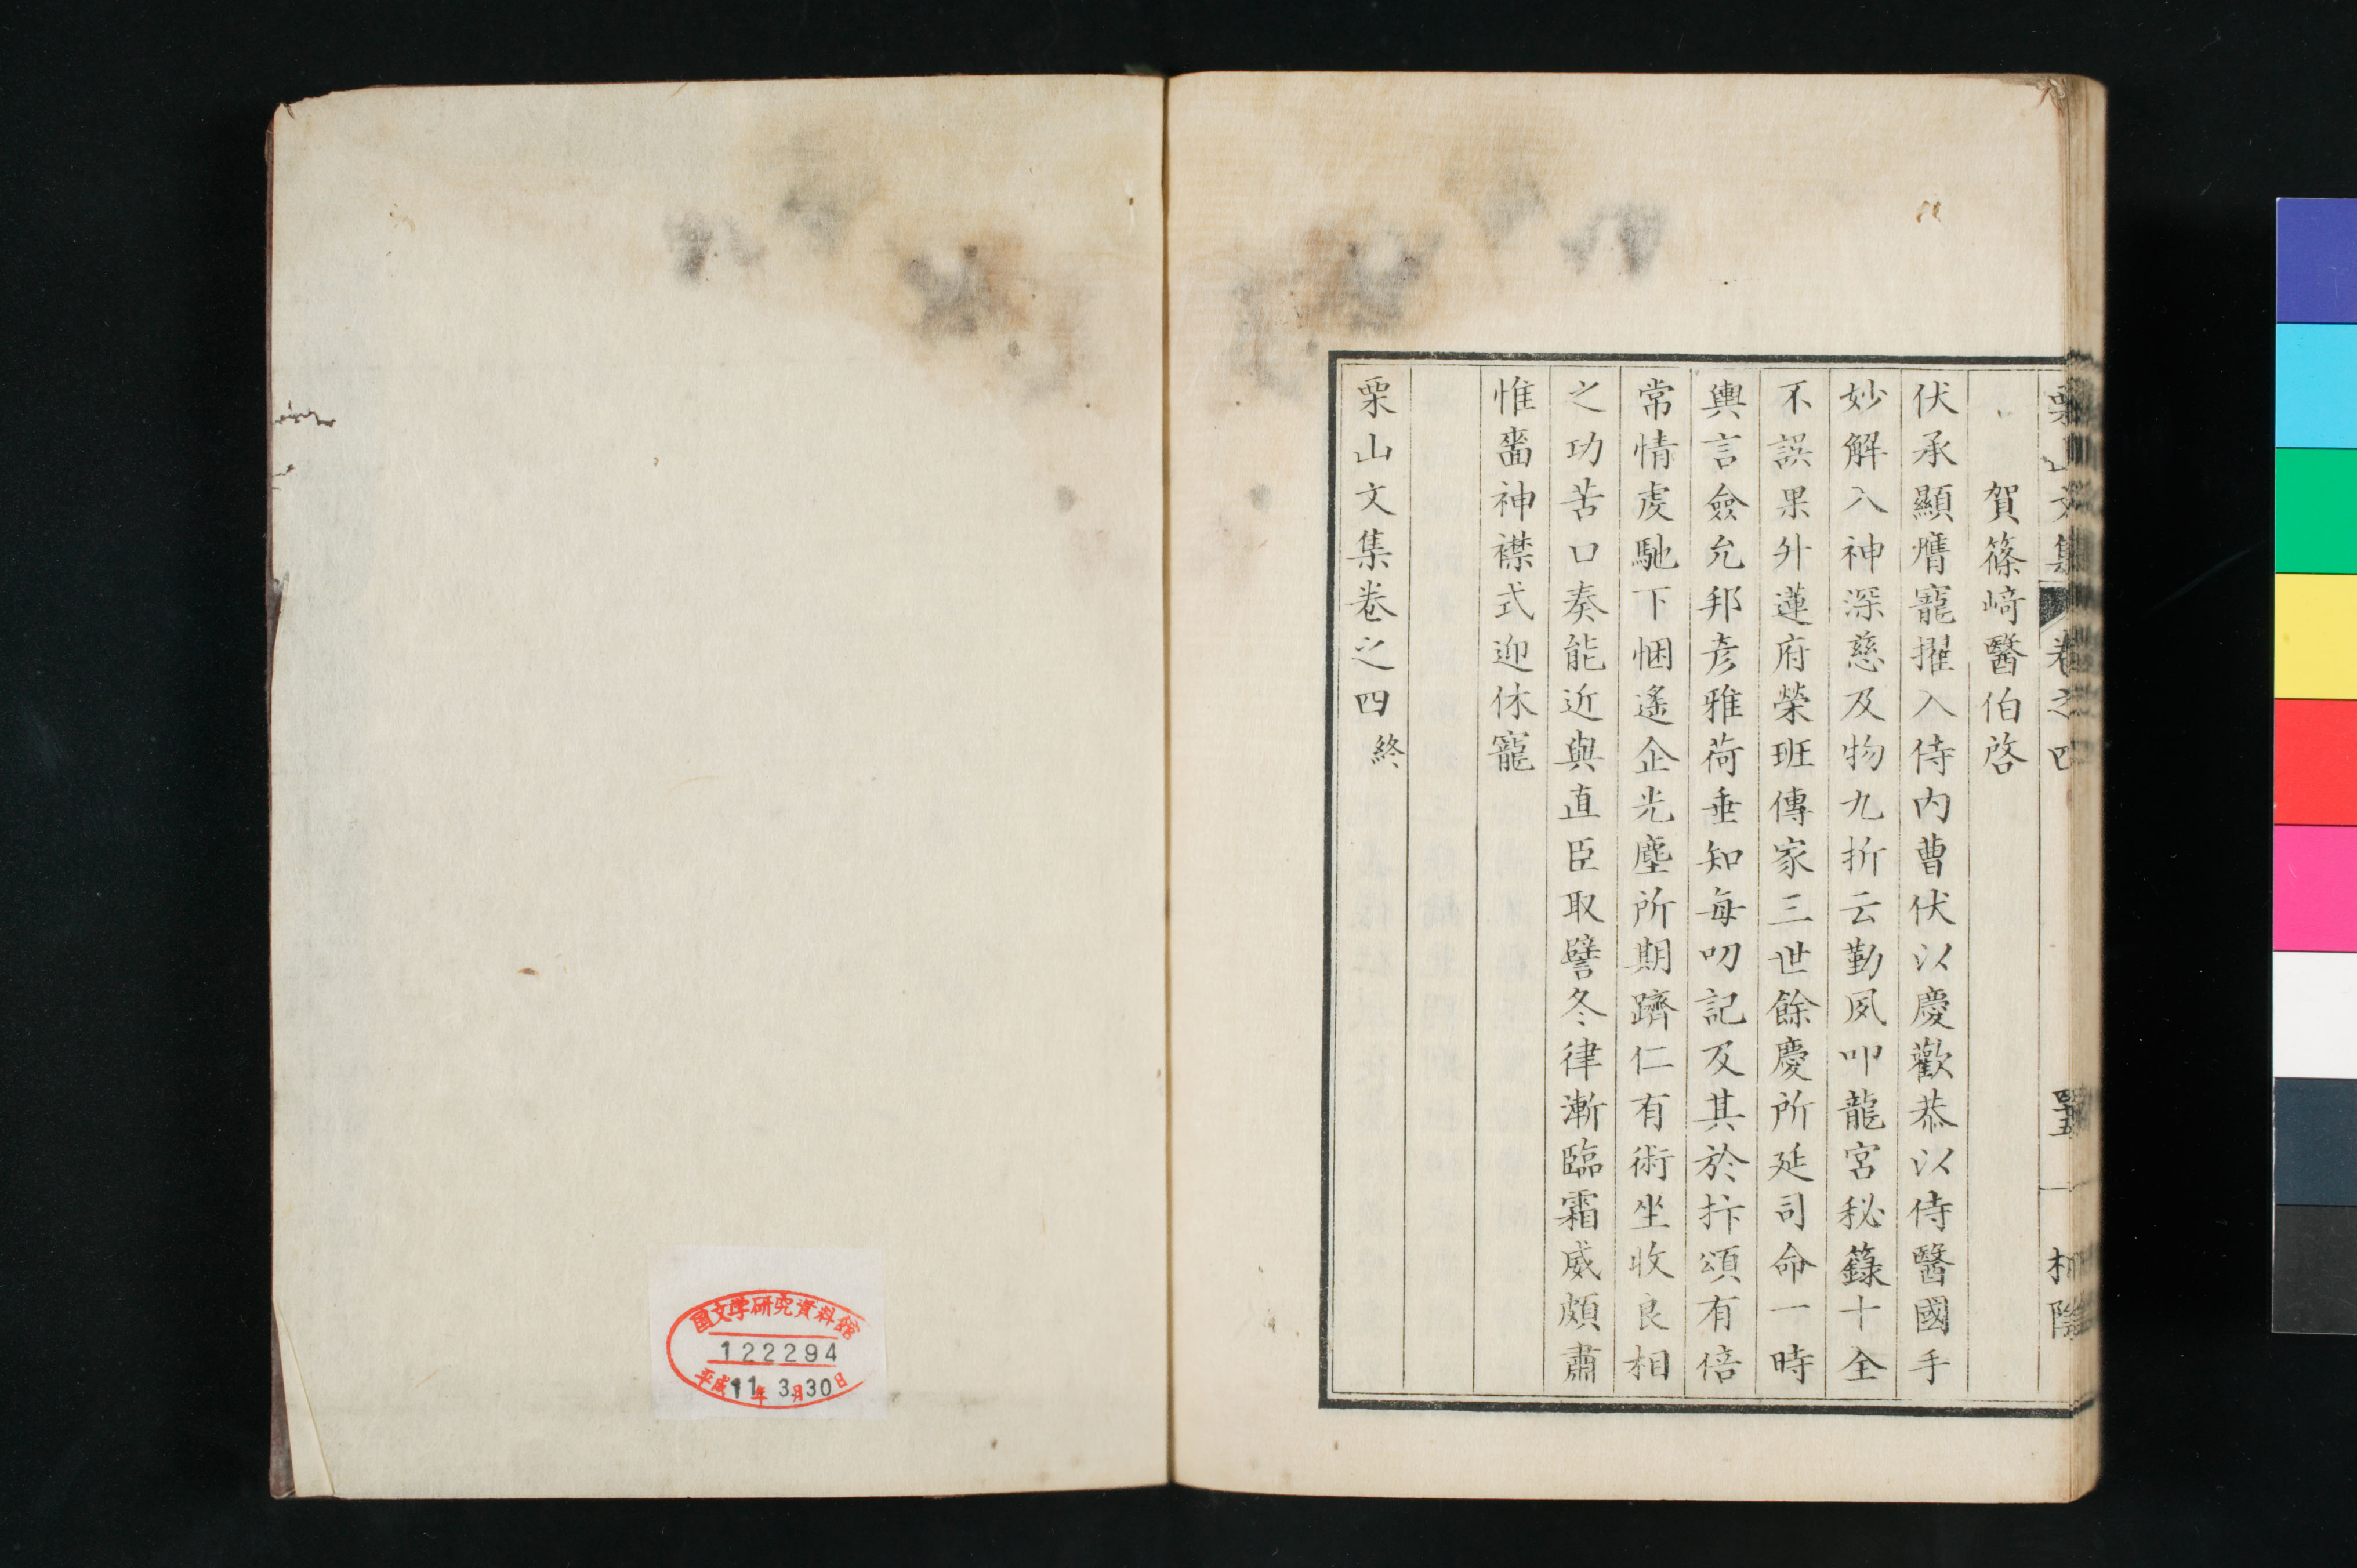 栗山文集 卷之四 四十五
賀篠﨑醫伯啓
伏承顯膺寵擢入侍内曹伏以慶歡恭以侍醫國手
妙解入神深慈及物九折云勤夙叩龍宮秘籙十全
不誤果升蓮府榮班傳家三世餘慶所延司命一時
輿言僉允邦彦雅荷垂知每叨記及其於抃頌有倍
常情虔馳下悃遙企光塵所期躋仁有術坐收良相
之功苦口奏能近與直臣取譬冬律漸臨霜威頗肅
惟嗇神襟式迎休寵
栗山文集卷之四終
国文学研究資料館
122294
平成11年3月30日